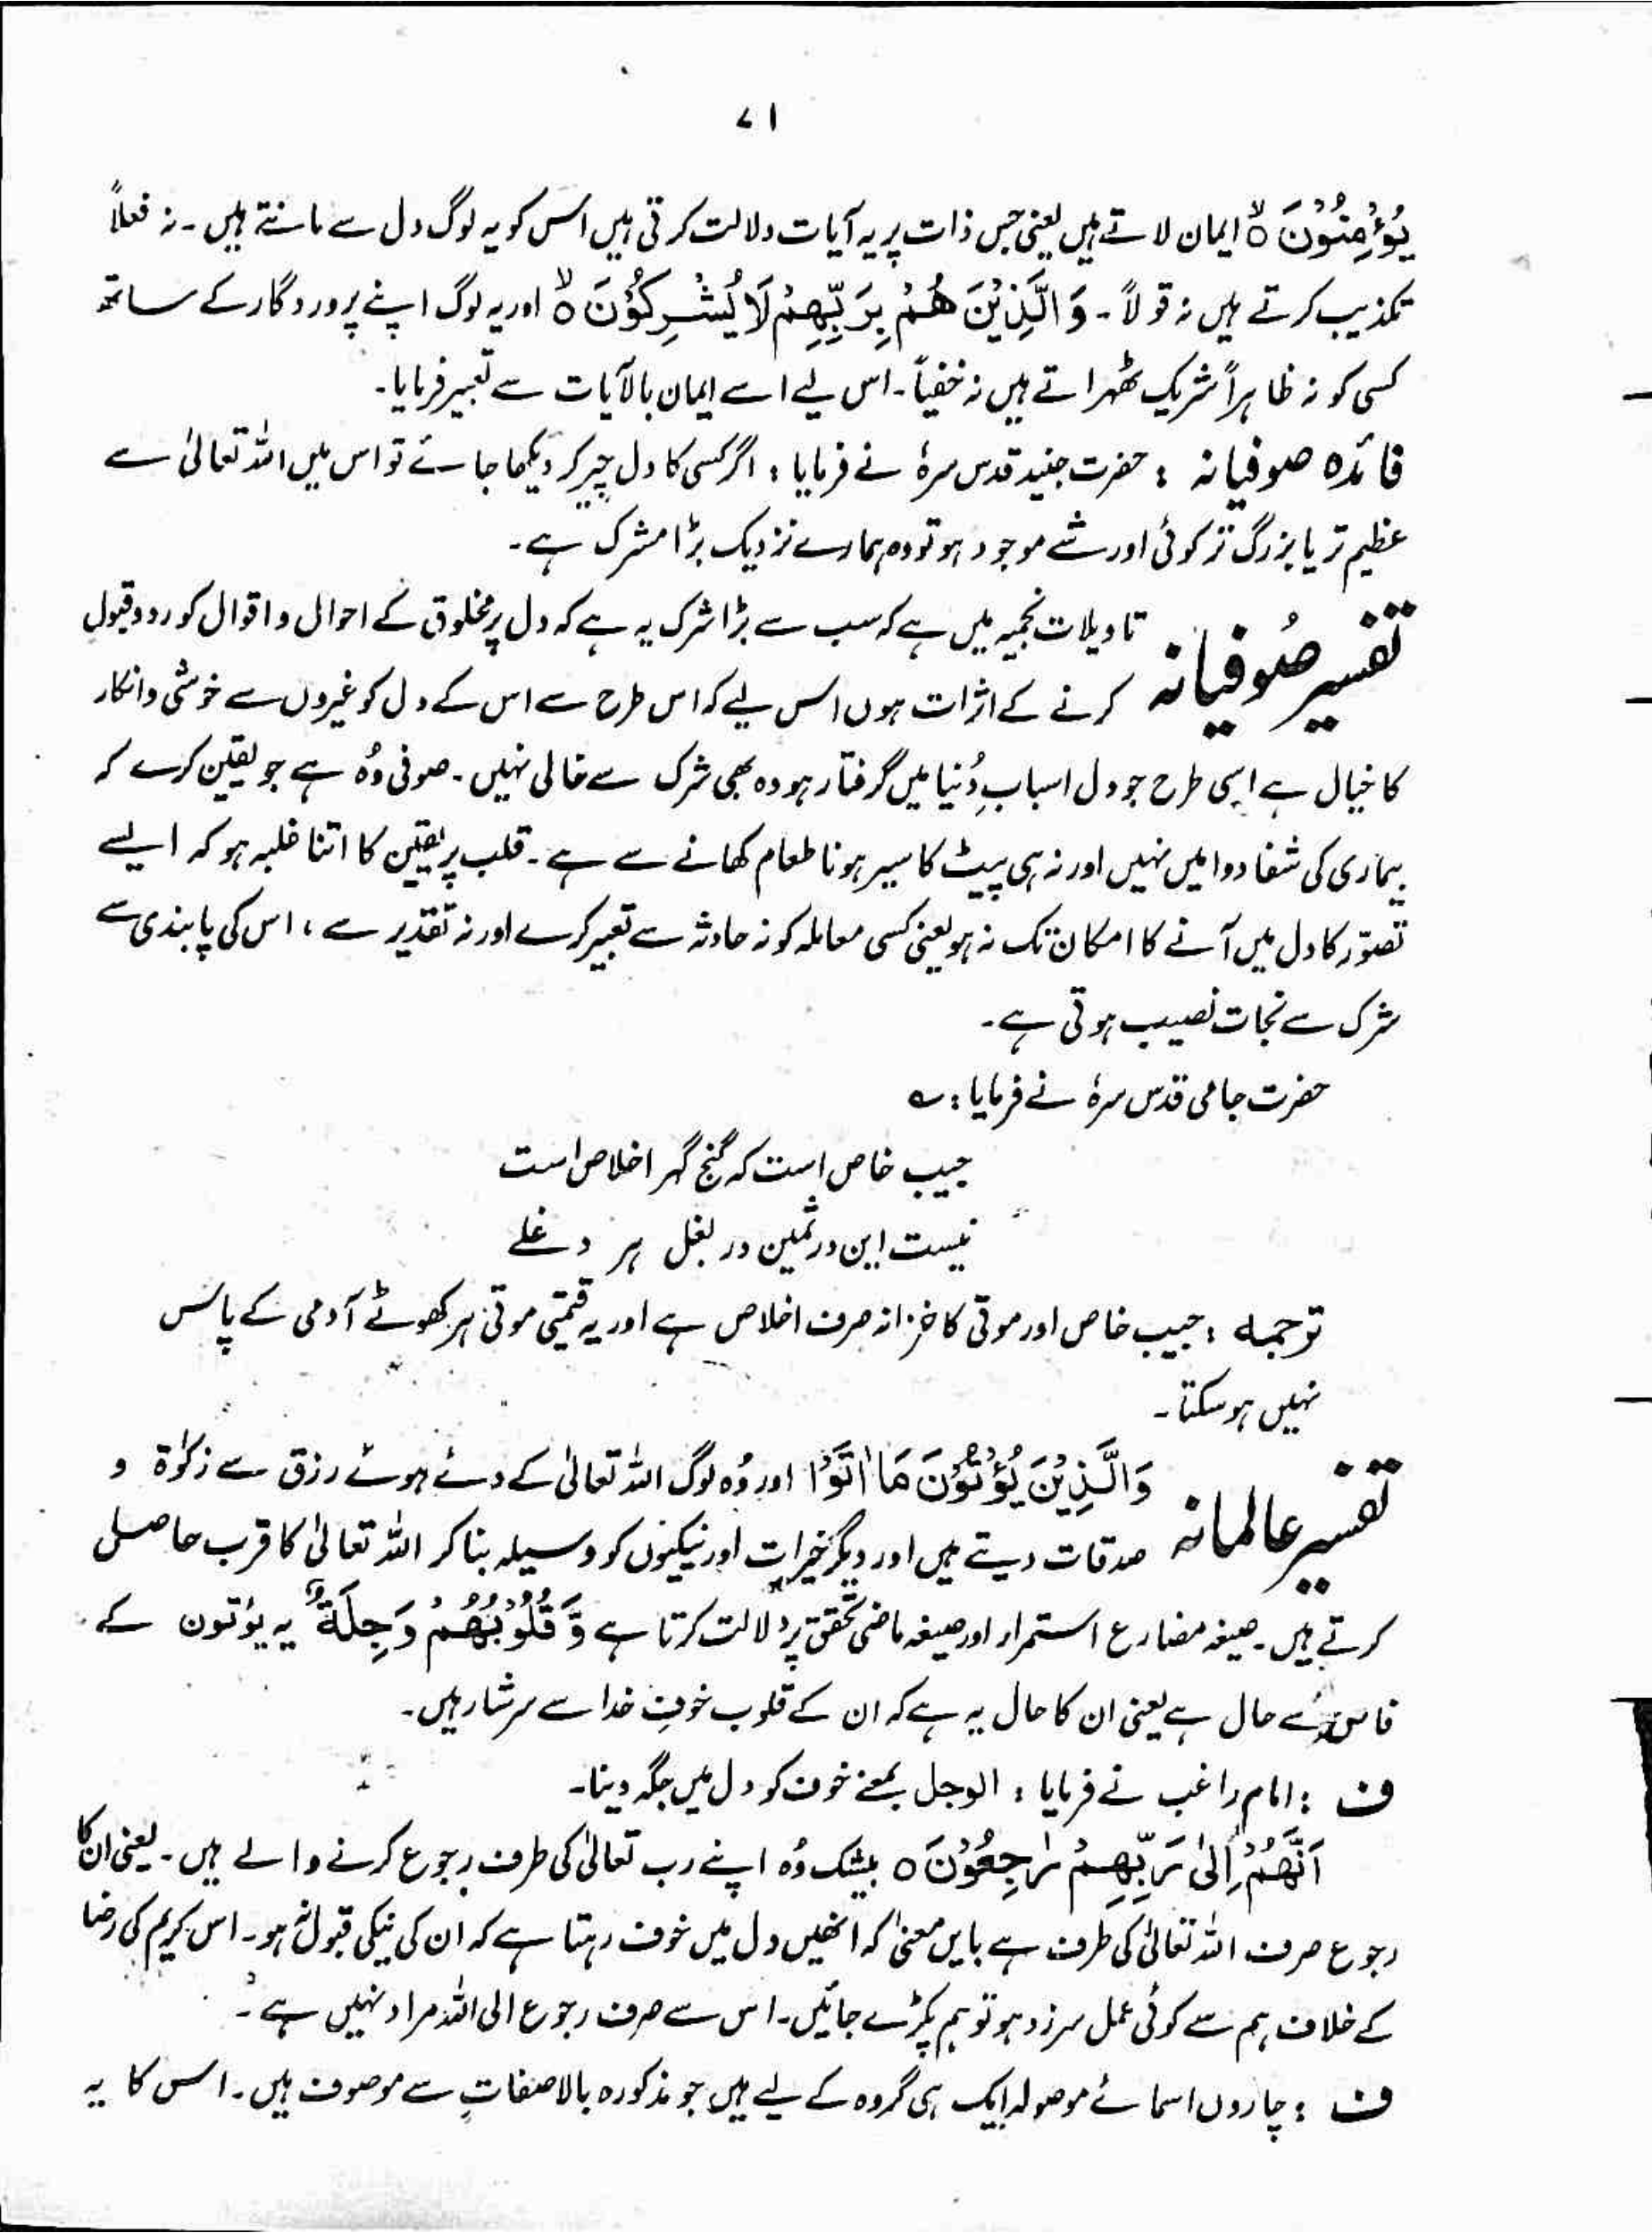 ۷۱
یُؤْمِنُوْنَ ۝ۙ ایمان لاتے ہیں یعنی جس ذات پر یہ آیات دلالت کرتی ہیں اس کو یہ لوگ دل سے مانتے ہیں۔ نہ فعلاً
تکذیب کرتے ہیں نہ قولاً۔ وَالَّذِیْنَ ھُمْ بِرَبِّھِمْ لَا یُشْرِکُوْنَ ۝ۙ اور یہ لوگ اپنے پروردگار کے ساتھ
کسی کو نہ ظاہراً شریک ٹھہراتے ہیں نہ خفیاً۔ اس لیے اسے ایمان بالآیات سے تعبیر فرمایا۔
فائدہ صوفیانہ : حضرت جنید قدس سرہٗ نے فرمایا : اگر کسی کا دل چیر کر دیکھا جائے تو اس میں اللہ تعالیٰ سے
عظیم تر یا بزرگ تر کوئی اور شے موجود ہو تو وہ ہمارے نزدیک بڑا مشرک ہے۔
تفسیر صُوفیانہ تاویلات نجمیہ میں ہے کہ سب سے بڑا شرک یہ ہے کہ دل پر مخلوق کے احوال و اقوال کو رد و قبول
کرنے کے اثرات ہوں اس لیے کہ اس طرح سے اس کے دل کو غیروں سے خوشی و انکار
کا خیال ہے اسی طرح جو دل اسبابِ دُنیا میں گرفتار ہو وہ بھی شرک سے خالی نہیں۔ صوفی وُہ ہے جو یقین کرے کہ
بیماری کی شفا دوا میں نہیں اور نہ ہی پیٹ کا سیر ہونا طعام کھانے سے ہے۔ قلب پر یقین کا اتنا غلبہ ہو کہ ایسے
تصوّر کا دل میں آنے کا امکان تک نہ ہو یعنی کسی معاملہ کو نہ حادثہ سے تعبیر کرے اور نہ تقدیر سے ، اس کی پابندی سے
شرک سے نجات نصیب ہوتی ہے۔
حضرت جامی قدس سرہٗ نے فرمایا : ؎
جیب خاص است کہ گنج گہر اخلاص است
نیست این در ثمین در بغل ہر دغلے
ترجمہ : جیب خاص اور موتی کا خزانہ صرف اخلاص ہے اور یہ قیمتی موتی ہر کھوٹے آدمی کے پاس
نہیں ہو سکتا۔
تفسیر عالمانہ وَالَّذِیْنَ یُؤْتُوْنَ مَا اٰتَوْا اور وُہ لوگ اللہ تعالیٰ کے دئے ہوئے رزق سے زکوٰۃ و
صدقات دیتے ہیں اور دیگر خیرات اور نیکیوں کو وسیلہ بنا کر اللہ تعالیٰ کا قرب حاصل
کرتے ہیں۔ صیغہ مضارع استمرار اور صیغہ ماضی تحقق پر دلالت کرتا ہے وَّ قُلُوْبُھُمْ وَجِلَۃٌ یہ یؤتون کے
فاعل سے حال ہے یعنی ان کا حال یہ ہے کہ ان کے قلوب خوفِ خدا سے سرشار ہیں۔
ف : امام راغب نے فرمایا : الوجل بمعنے خوف کو دل میں جگہ دینا۔
اَنَّھُمْ اِلٰی رَبِّھِمْ رٰجِعُوْنَ ۝ بیشک وُہ اپنے رب تعالیٰ کی طرف رجوع کرنے والے ہیں۔ یعنی ان کا
رجوع صرف اللہ تعالیٰ کی طرف ہے بایں معنیٰ کہ انھیں دل میں خوف رہتا ہے کہ ان کی نیکی قبول نہ ہو۔ اس کریم کی رضا
کے خلاف ہم سے کوئی عمل سرزد ہو تو ہم پکڑے جائیں۔ اس سے صرف رجوع الی اللہ مراد نہیں ہے۔
ف : چاروں اسمائے موصولہ ایک ہی گروہ کے لیے ہیں جو مذکورہ بالا صفات سے موصوف ہیں۔ اس کا یہ